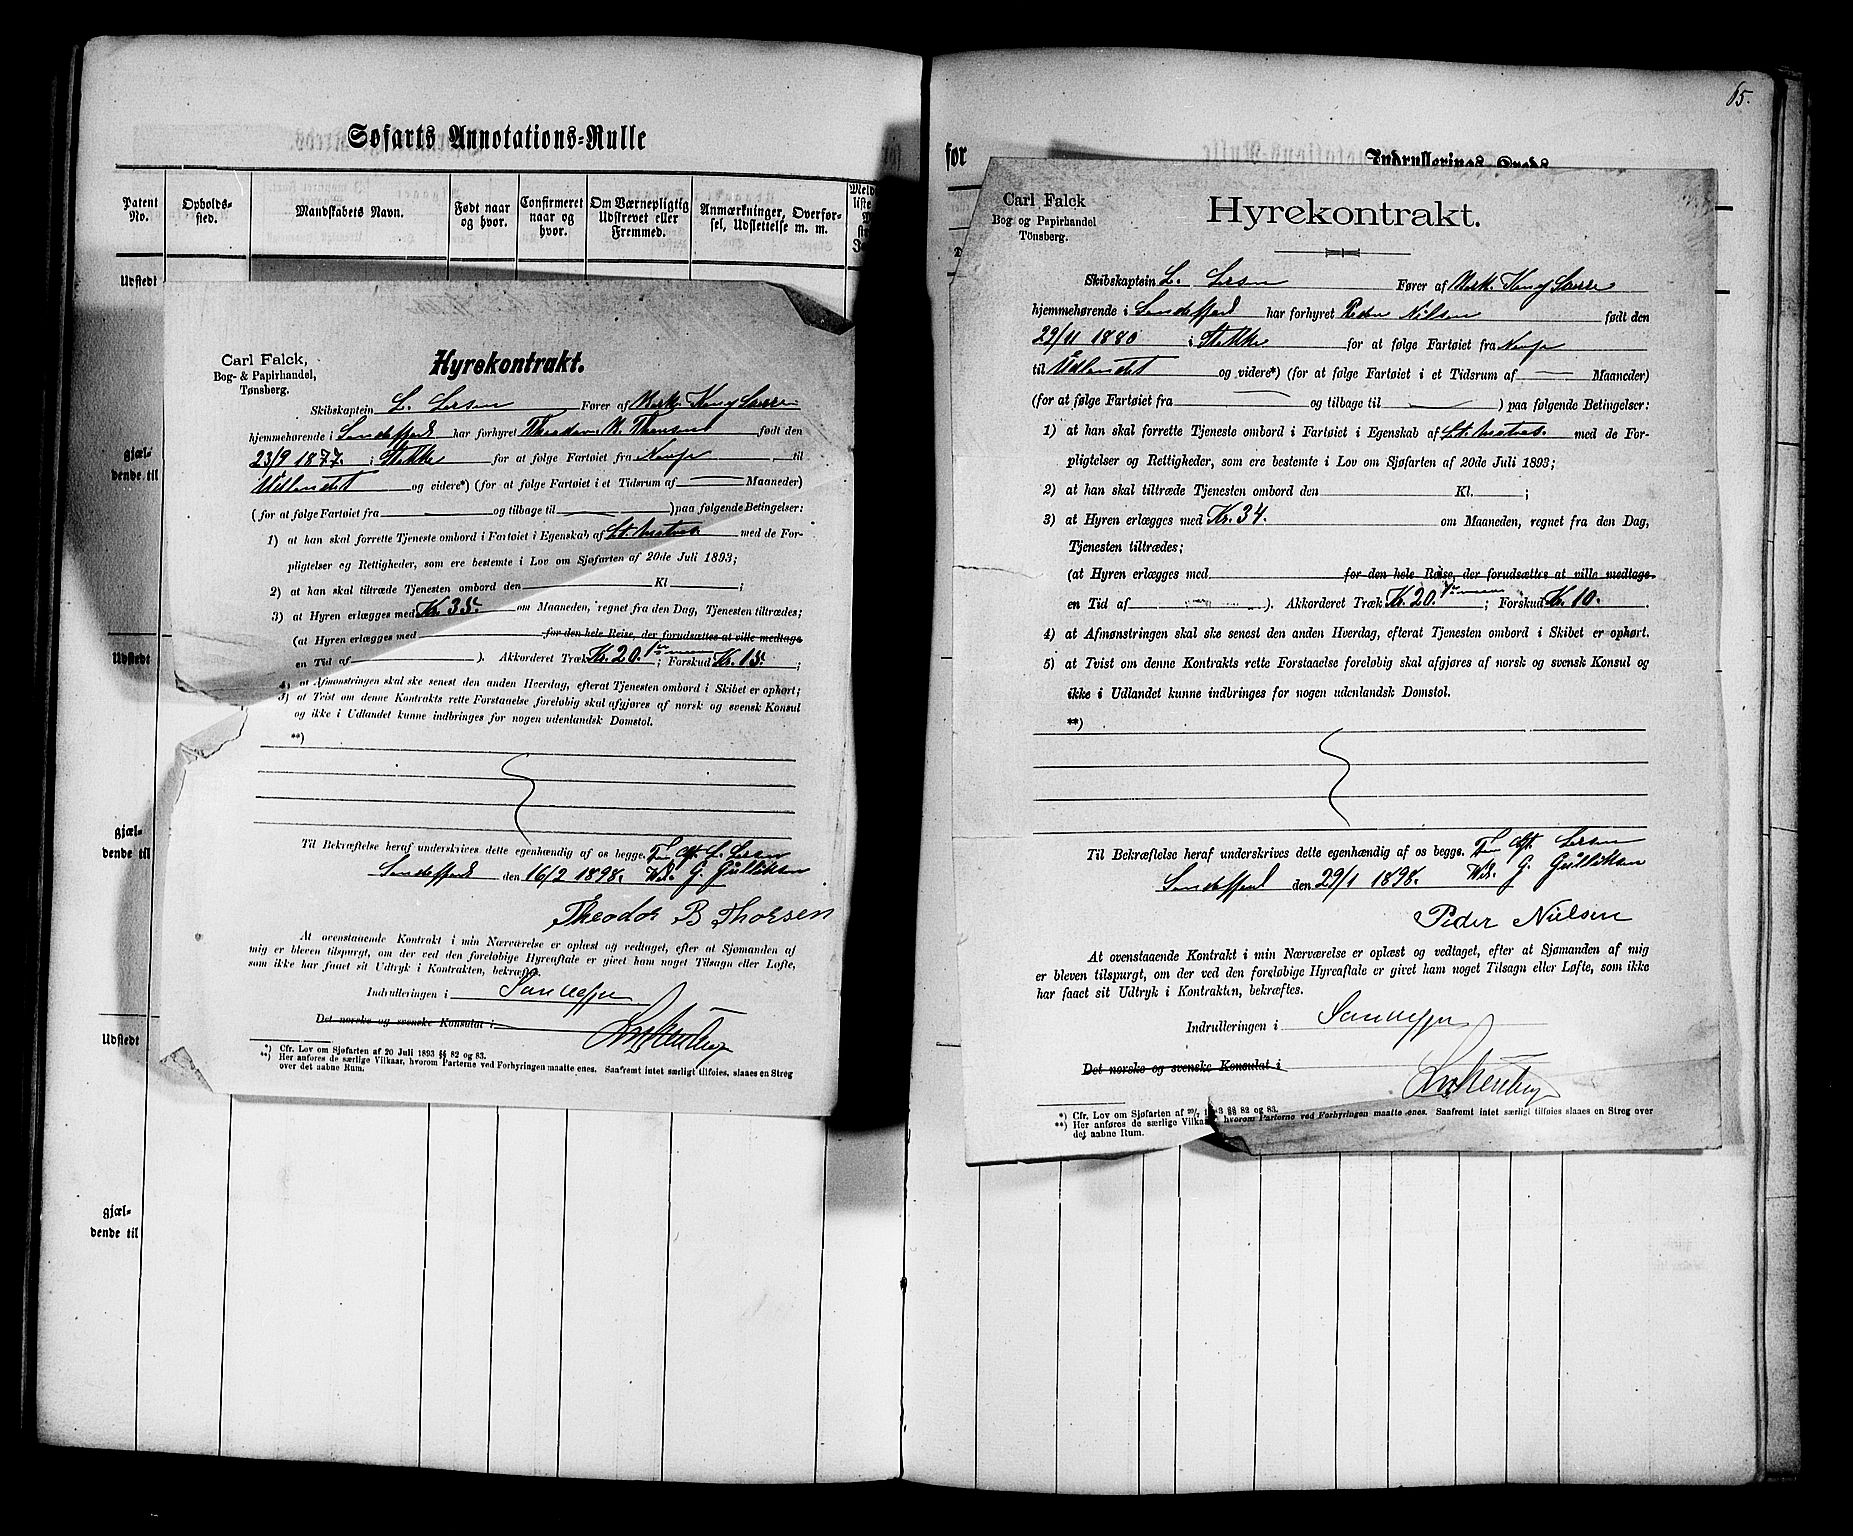 65.
Søfarts Annotations-Rulle
for
Indrullerings-Kreds
Patent No.
Opholds-sted.
Mandskabets Navn.
Født naar og hvor.
Confirmeret naar og hvor.
Om Værnepligtig Udskrevet eller Fremmed.
Anmærkninger, Overførsel, Udslettelse m. m.
Udstedt
gjæl-
dende til
Udstedt
gjæl-
dende til
Udstedt
gjæl-
dende til
Carl Falck,
Bog- & Papirhandel,
Tønsberg.
Hyrekontrakt.
Skibskaptein L. Larsen Fører af Bark. Kong Sverre
hjemmehørende i Sandefjord har forhyret Theodor B. Thorsen født den
23/9 1877. i Stokke for at følge Fartøiet fra Norge til
Udlandet og videre*) (for at følge Fartøiet i et Tidsrum af — Maaneder)
(for at følge Fartøiet fra — og tilbage til — ) paa følgende Betingelser:
1) at han skal forrette Tjeneste ombord i Fartøiet i Egenskab af Lt. Matros med de For-
pligtelser og Rettigheder, som ere bestemte i Lov om Sjøfarten af 20de Juli 1893;
2) at han skal tiltræde Tjenesten ombord den Kl. ;
3) at Hyren erlægges med Kr. 35. om Maaneden, regnet fra den Dag, Tjenesten tiltrædes;
(at Hyren erlægges med for den hele Reise, der forudsættes at ville medtage
en Tid af ). Akkorderet Træk Kr. 20. ; Forskud Kr. 15. ;
4) at Afmønstringen skal ske senest den anden Hverdag, efterat Tjenesten ombord i Skibet er ophørt;
5) at Tvist om denne Kontrakts rette Forstaaelse foreløbig skal afgjøres af norsk og svensk Konsul
og ikke i Udlandet kunne indbringes for nogen udenlandsk Domstol.
**)
Til Bekræftelse heraf underskrives dette egenhændig af os begge. For Cpt. L. Larsen
Sandefjord den 16/2 1898. G. Gulliksen
Theodor B Thorsen
At ovenstaaende Kontrakt i min Nærværelse er oplæst og vedtaget, efter at Sjømanden af
mig er bleven tilspurgt, om der ved den foreløbige Hyreaftale er givet ham noget Tilsagn eller Løfte,
som ikke har faaet sit Udtryk i Kontrakten, bekræftes.
Indrulleringen i Sandefjord
Det norske og svenske Konsulat i
*) Cfr. Lov om Sjøfarten af 20 Juli 1893 §§ 82 og 83.
**) Her anføres de særlige Vilkaar, hvorom Parterne ved Forhyringen maatte enes. Saafremt intet særligt tilføies, slaaes en Streg
over det aabne Rum.
Carl Falck
Bog og Papirhandel
Tönsberg.
Hyrekontrakt.
Skibskaptein L. Larsen Fører af Bark. Kong Sverre
hjemmehørende i Sandefjord har forhyret Peder Nilsen født den
29/11 1880 i Stokke for at følge Fartøiet fra Norge
til Udlandet og videre*) (for at følge Fartøiet i et Tidsrum af — Maaneder)
(for at følge Fartøiet fra — og tilbage til — ) paa følgende Betingelser:
1) at han skal forrette Tjeneste ombord i Fartøiet i Egenskab af Lt. Matros. med de For-
pligtelser og Rettigheder, som ere bestemte i Lov om Sjøfarten af 20de Juli 1893;
2) at han skal tiltræde Tjenesten ombord den Kl. ;
3) at Hyren erlægges med Kr. 34. om Maaneden, regnet fra den Dag,
Tjenesten tiltrædes;
(at Hyren erlægges med for den hele Reise, der forudsættes at ville medtage
en Tid af ). Akkorderet Træk Kr. 20. ; Forskud Kr. 10. .
4) at Afmønstringen skal ske senest den anden Hverdag, efterat Tjenesten ombord i Skibet er ophørt.
5) at Tvist om denne Kontrakts rette Forstaaelse foreløbig skal afgjøres af norsk og svensk Konsul og
ikke i Udlandet kunne indbringes for nogen udenlandsk Domstol.
**)
Til Bekræftelse heraf underskrives dette egenhændig af os begge. For Cpt. Larsen
Sandefjord den 29/1 1898. G. Gulliksen
Peder Nielsen
At ovenstaaende Kontrakt i min Nærværelse er oplæst og vedtaget, efter at Sjømanden af mig
er bleven tilspurgt, om der ved den foreløbige Hyreaftale er givet ham noget Tilsagn eller Løfte, som ikke
har faaet sit Udtryk i Kontrakten, bekræftes.
Indrulleringen i Sandefjord
Det norske og svenske Konsulat i
*) Cfr. Lov om Sjøfarten af 20/7 3 §§ 82 og 83.
**) Her anføres de særlige Vilkaar, hvorom Parterne ved Forhyringen maatte enes. Saafremt intet særligt tilføies slaaes en Streg over
det aabne Rum.